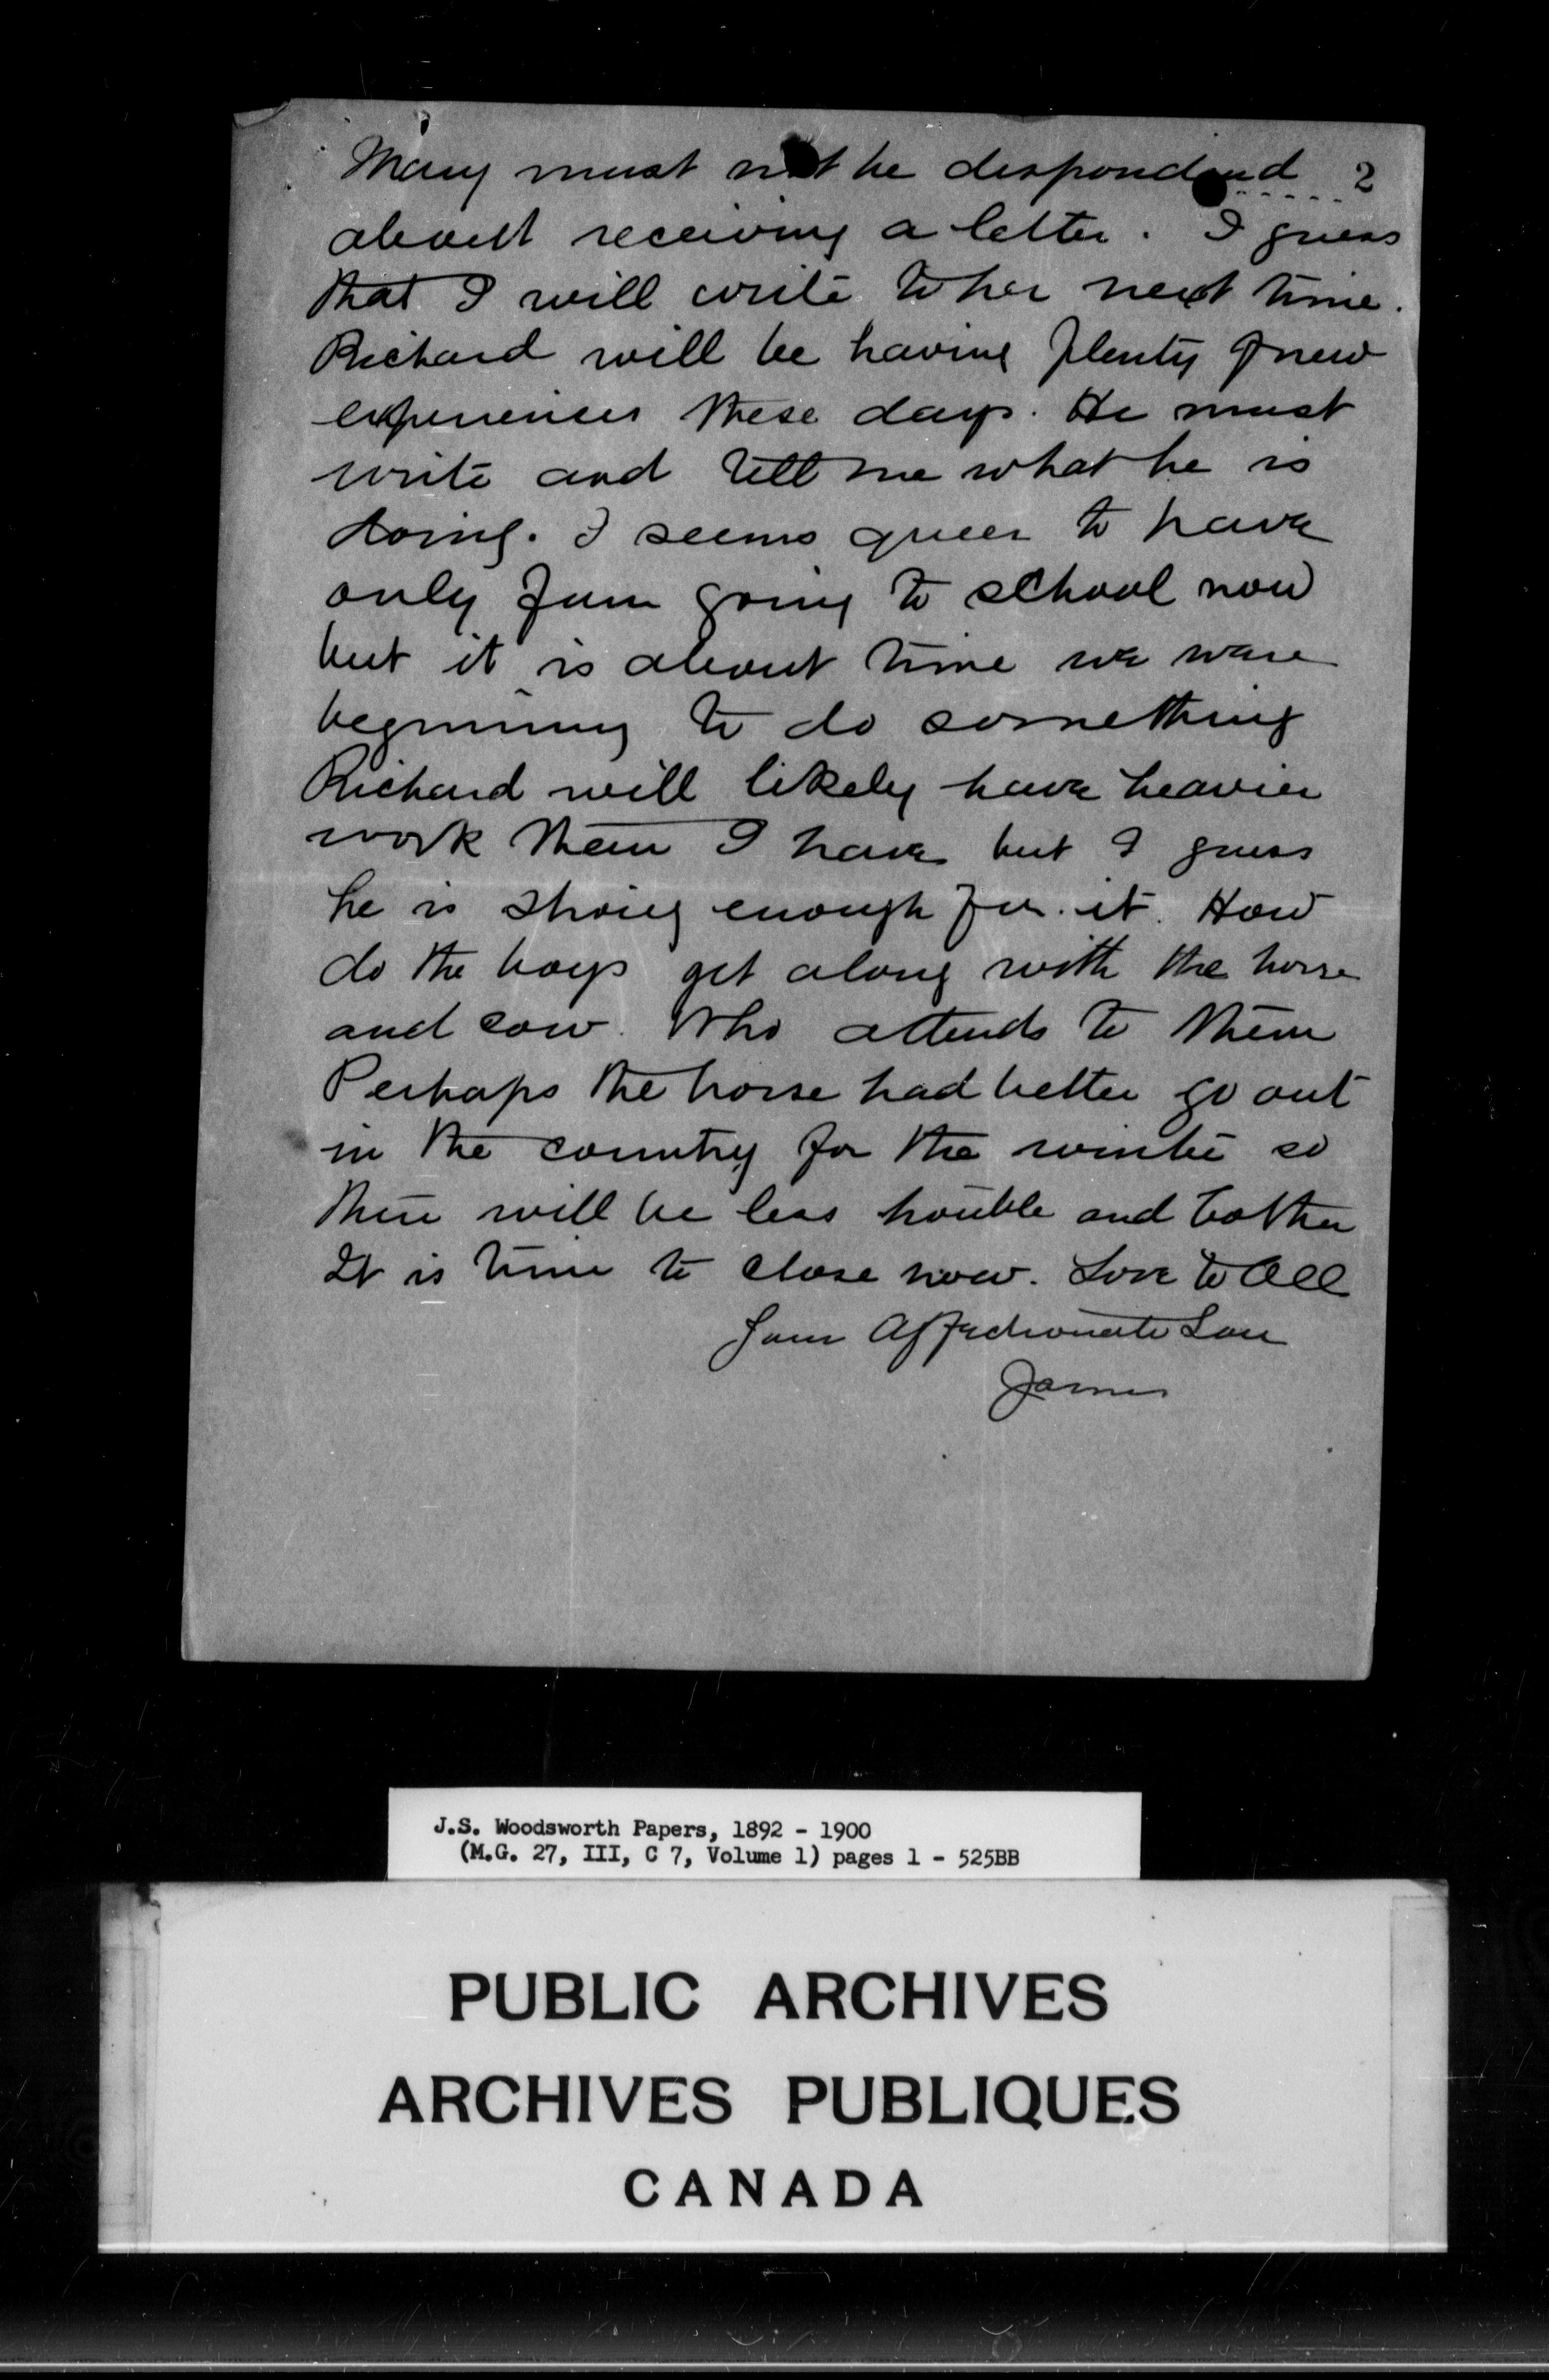 Mary must not be despondend 2
about receiving a letter. I guess
that I will write to her next time.
Richard will be having plenty of new
experiences these days. He must
write and tell me what he is
doing. I seems queer to have
only four going to school now
but it is about time we were
beginning to do something
Richard will likely have heavier
work than I have but I guess
he is strong enough for it. How
do the boys get along with the horse
and cow. Who attends to them
Perhaps the horse had better go out
in the country for the winter so
there will be less trouble and bother
It is time to close now. Love to All
Your Affectionate Son
James
J.S. Woodsworth Papers, 1892 - 1900
(M.G. 27, III, C 7, Volume 1) pages 1 - 525BB
PUBLIC ARCHIVES
ARCHIVES PUBLIQUES
CANADA